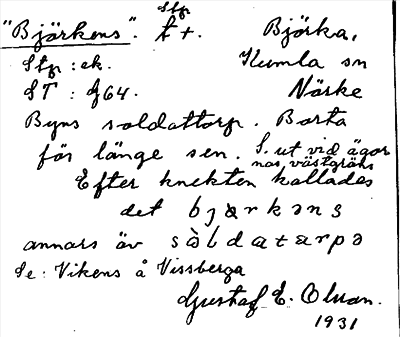 Stp.
"Björkens". t +. Björka,
Stp : ek. Kumla sn
ST : g64. Närke
Byns soldattorp. Borta
för länge sen. S. ut vid ägor
nas västgräns
Efter knekten kallades
det bjærkəns
annars äv sòldatarpə
Se: Vikens å Vissberga
Gustaf E. Olsson.
1931